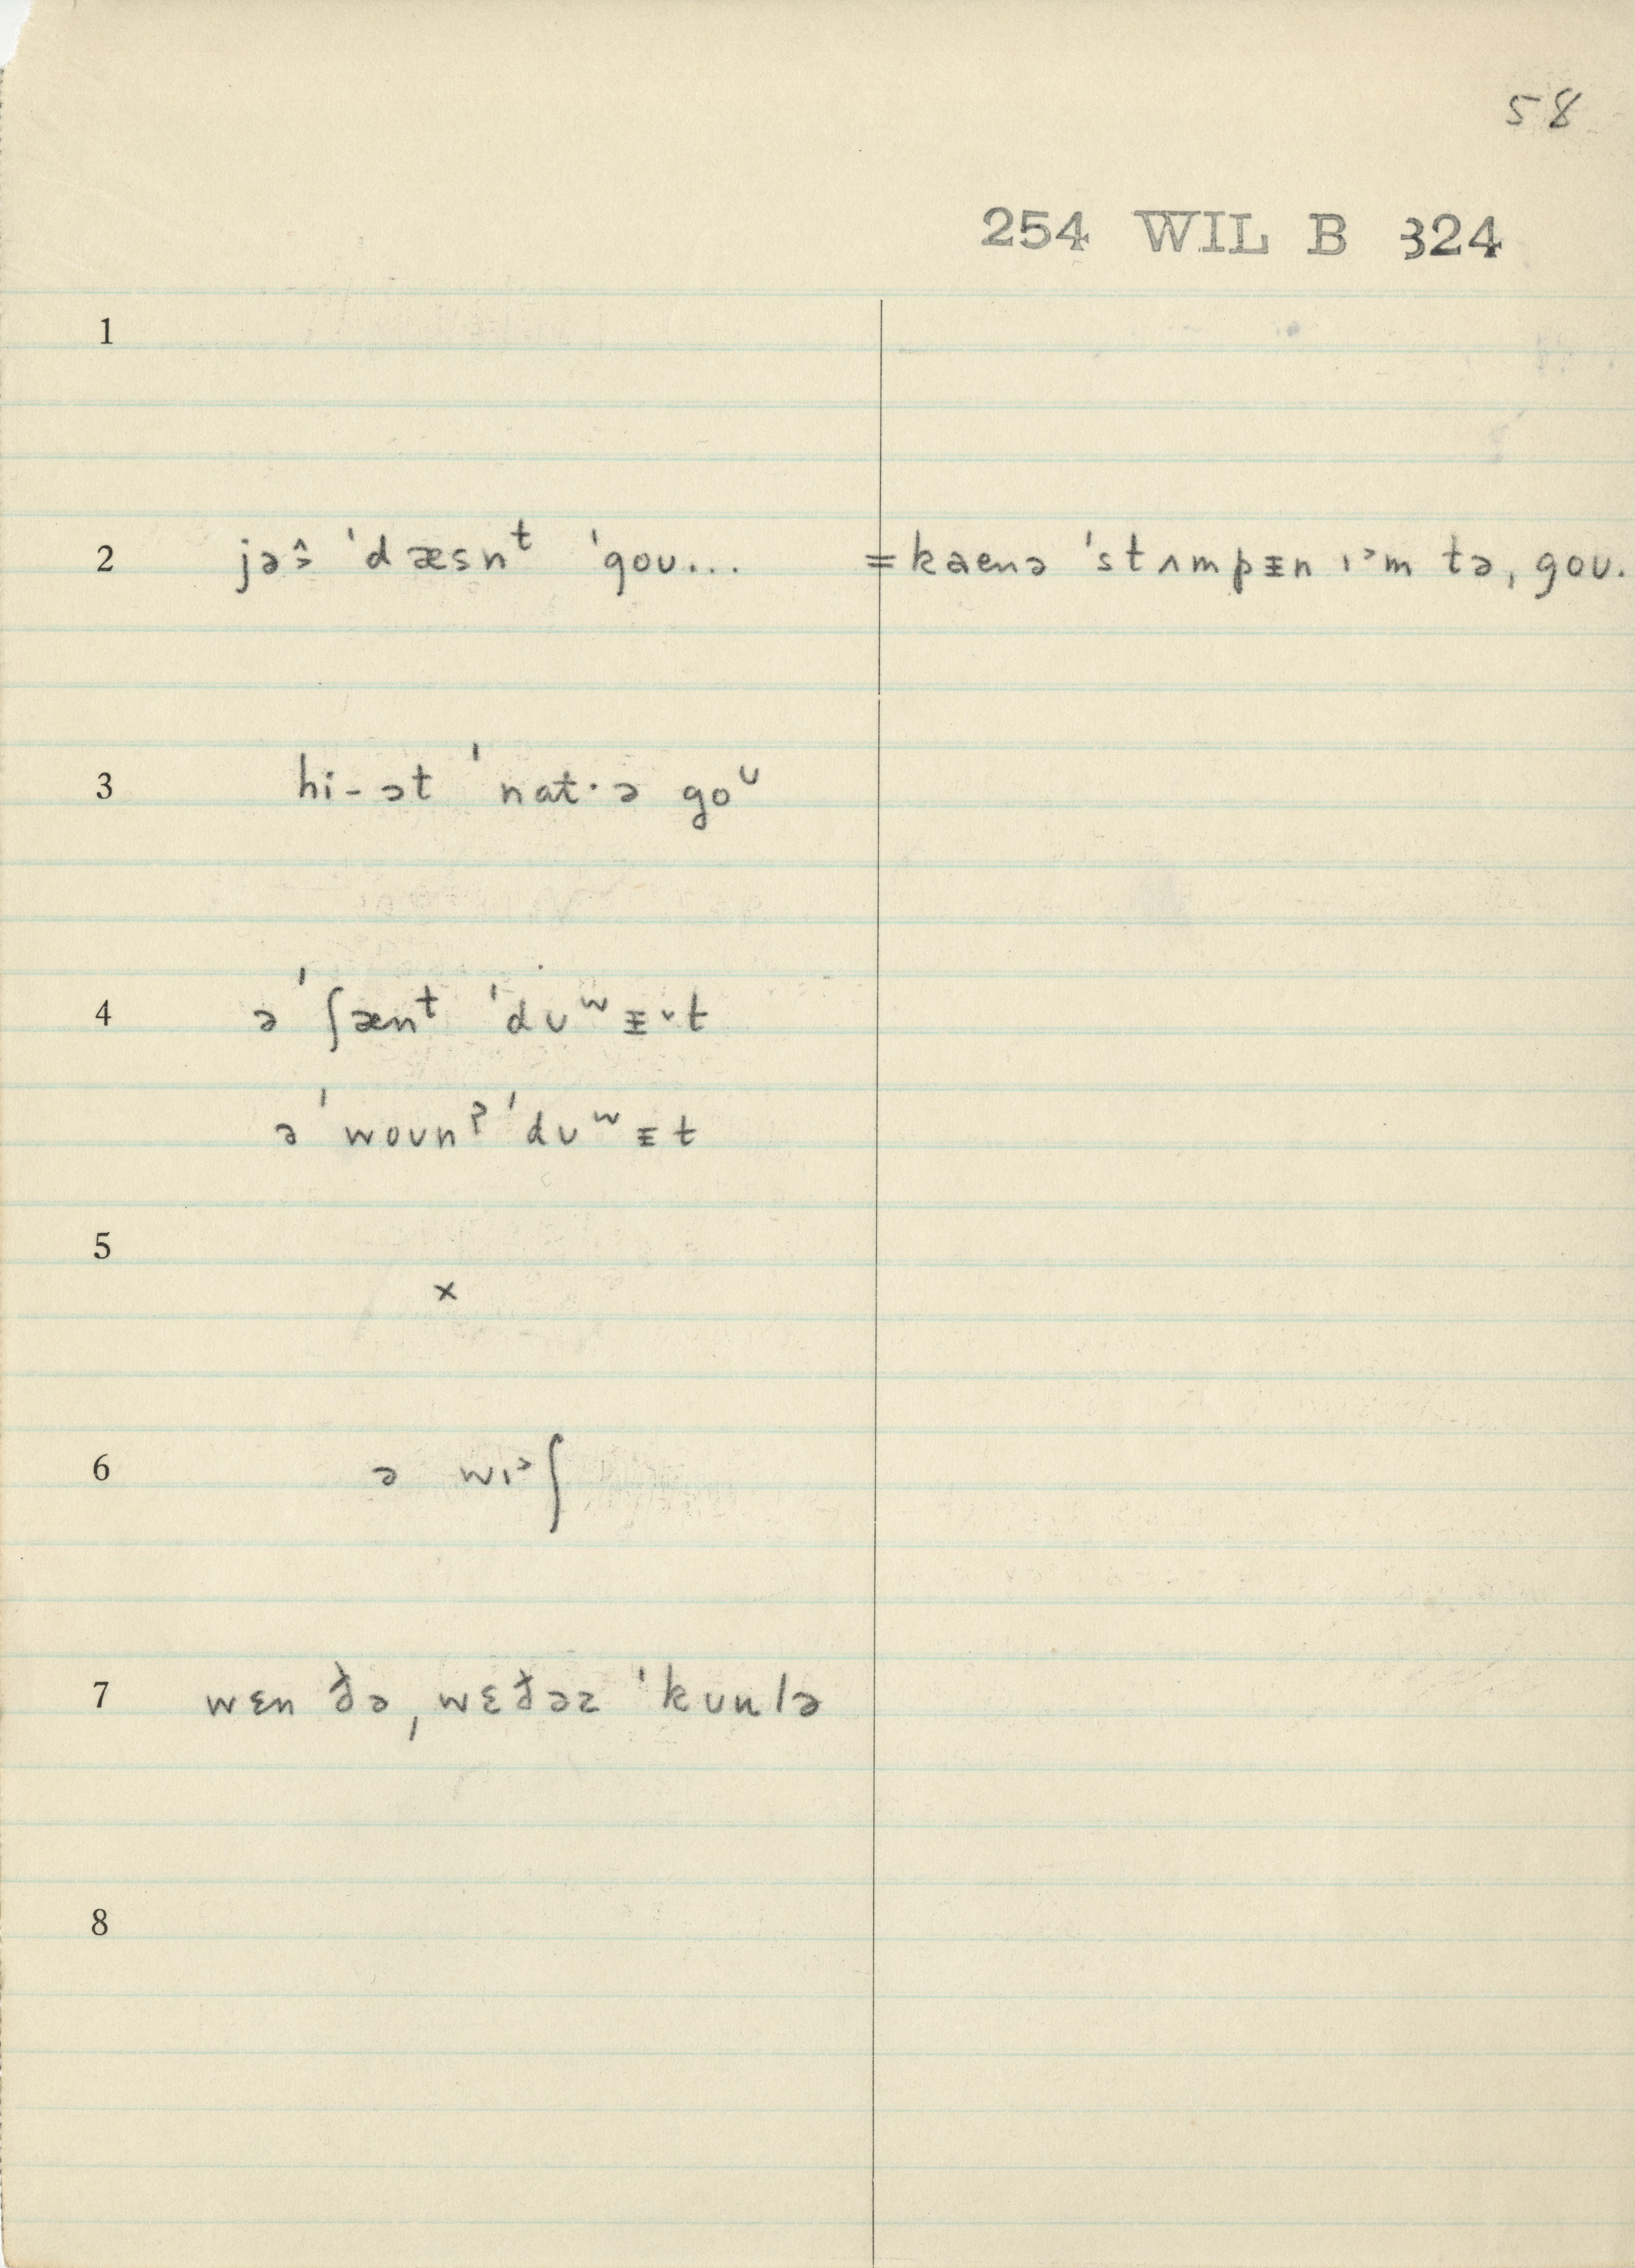 58
254 WIL B 324
1
2 jəɜ̂ ˈdæsnᵗ ˈgoʊ... =kaenə ˈstʌmpᵻn ɪᵊm tə ˌgoʊ.
3 hi-ət ˈnat·ə goᶷ
4 ə ˈʃænᵗ ˈdʊʷᵻ˅t
ə ˈwoʊnˀ ˈdʊʷᵻt
5 ×
6 ə wɪᵊʃ
7 wɛn ðə ˌwɛðəɹ ˈkʊulə
8